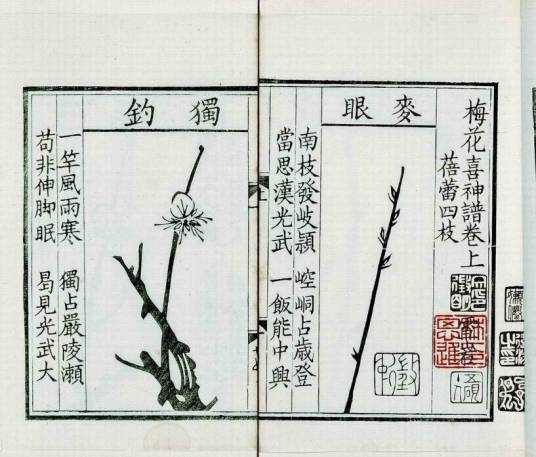 梅花喜神譜卷上
蓓蕾四枝
麥眼
南枝發岐頴 崆峒占歳登
當思漢光武 一飯能中興
獨釣
一竿風雨寒 獨占嚴陵瀬
苟非伸脚眠 曷見光武大